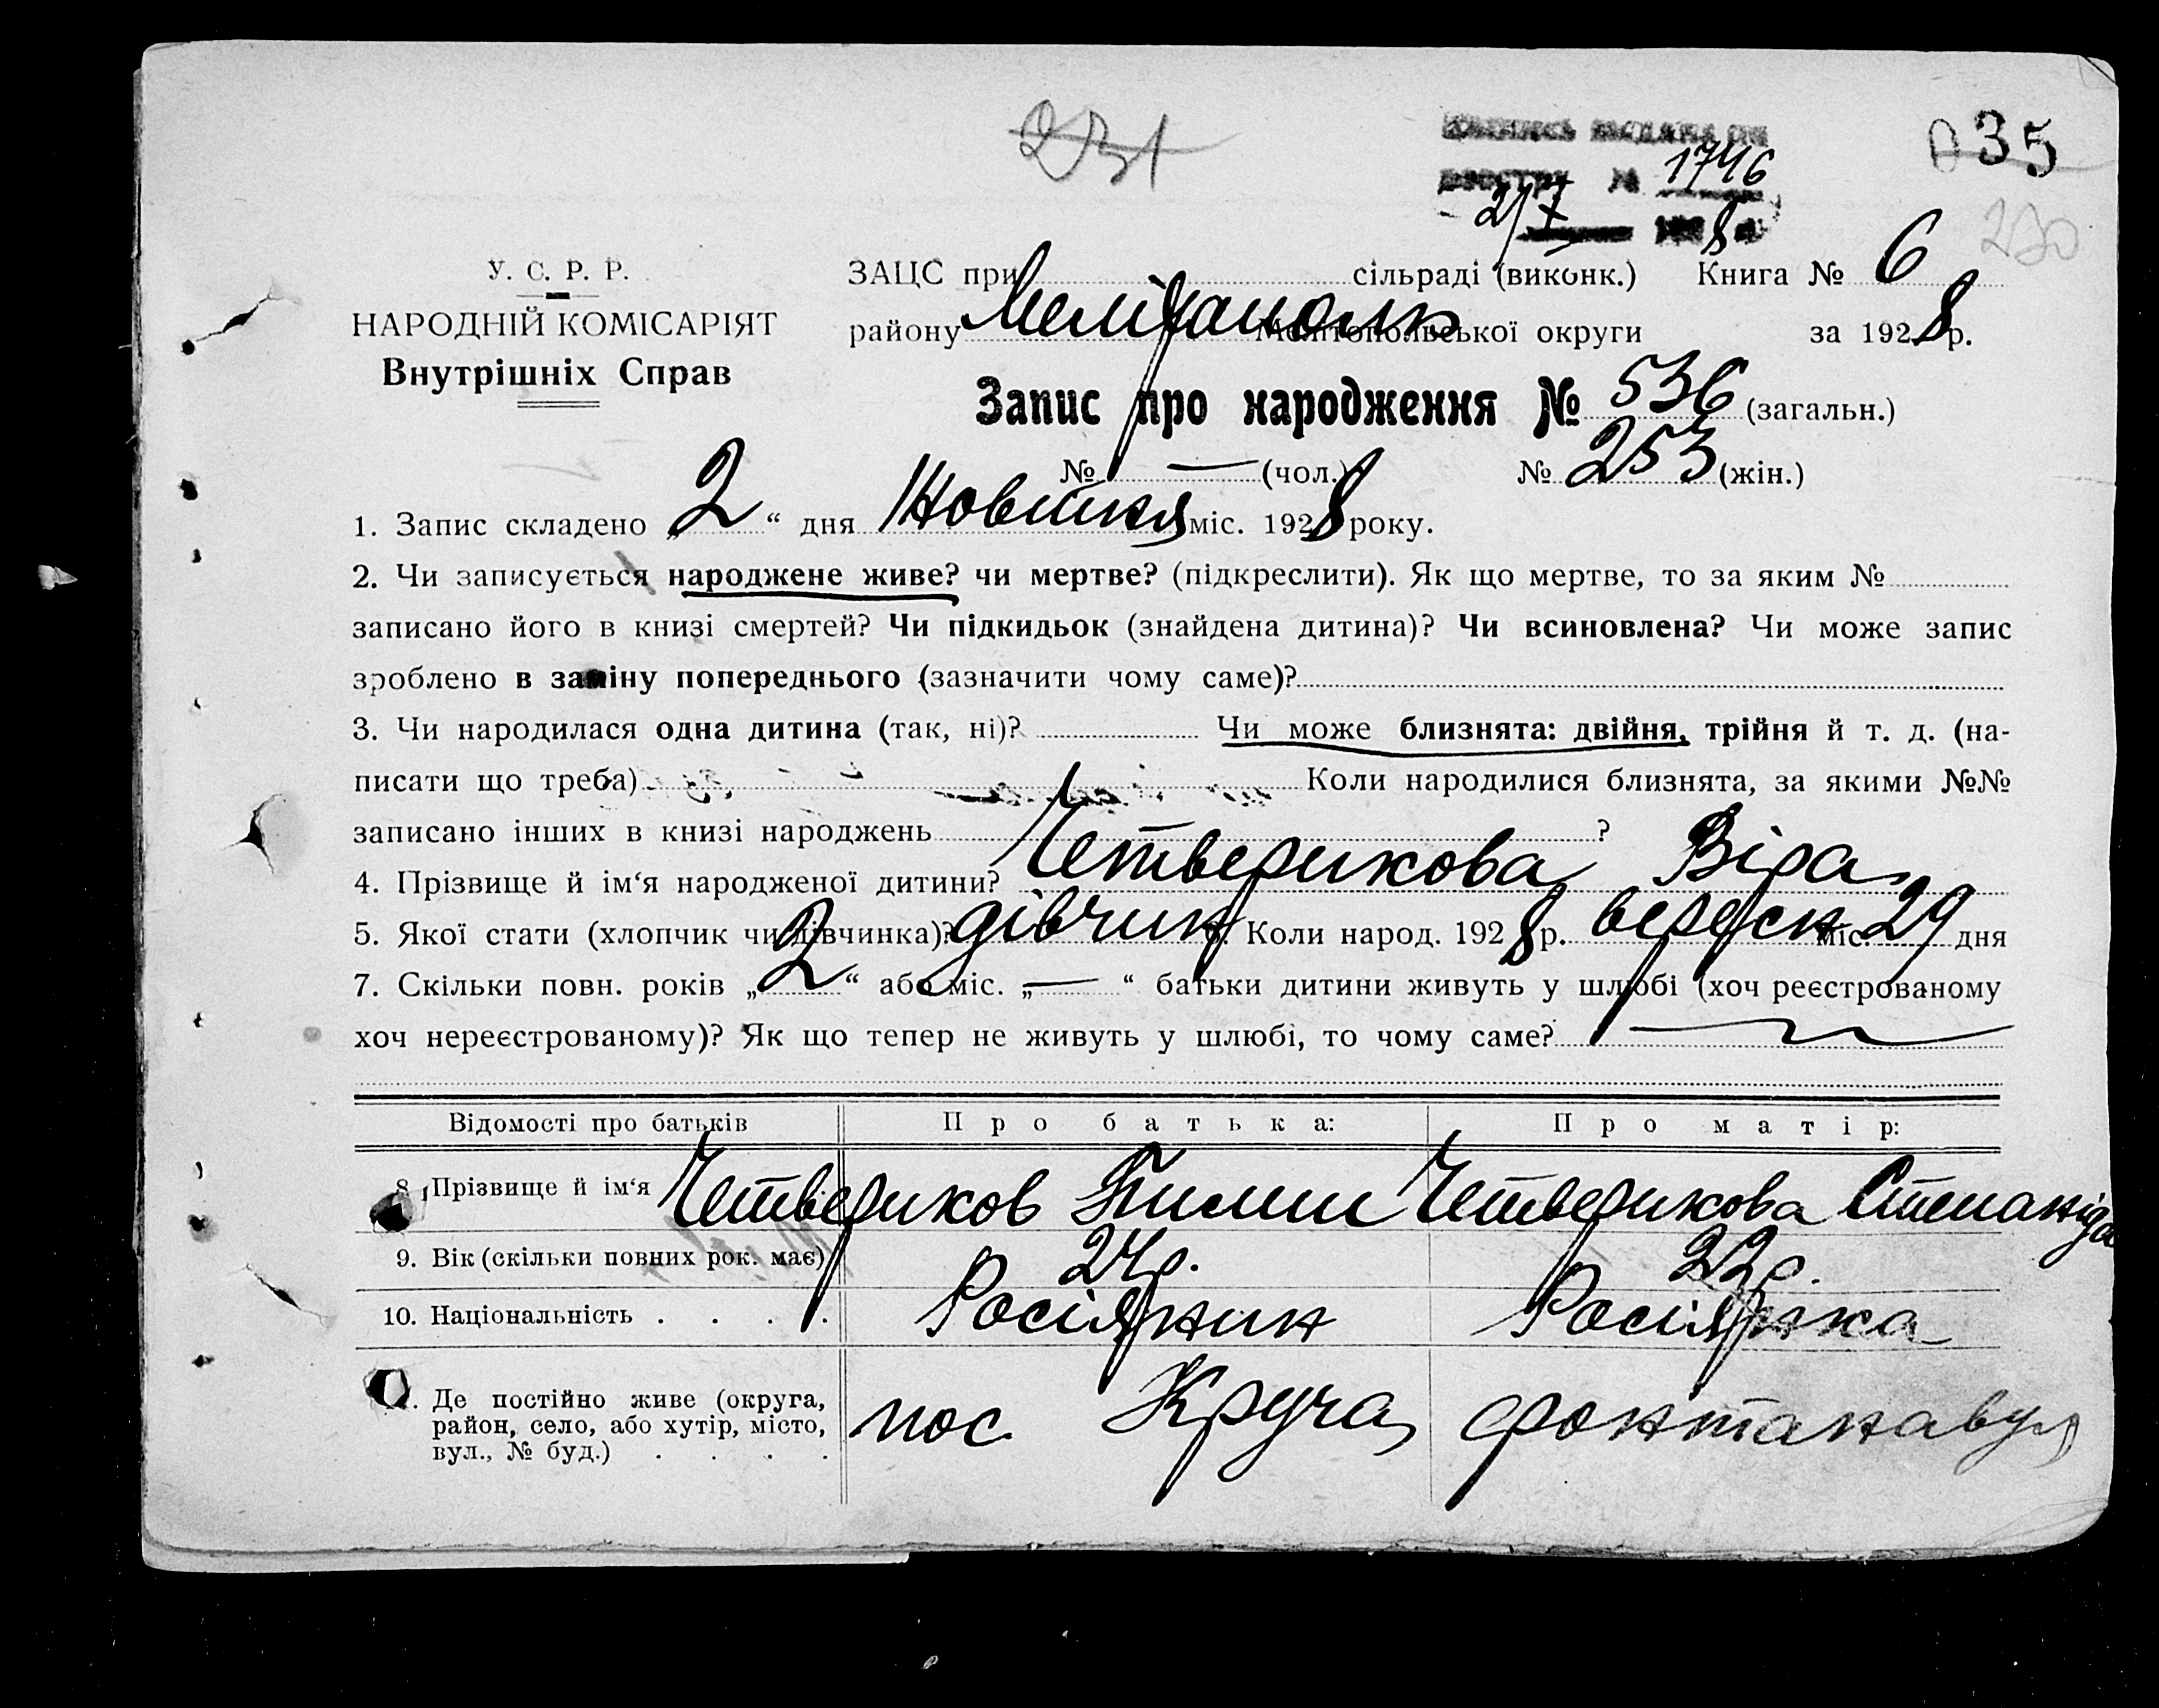 231
1746
2/X
8
035
230
У. С. Р. Р.
НАРОДНІЙ КОМІСАРІЯТ
Внутрішніх Справ
ЗАЦС при сільраді (виконк.) Книга № 6
району Мелітополь Мелітопольської округи за 1928 р.
Запис про народження № 536 (загальн.)
№ — (чол.) № 253 (жін.)
1. Запис складено „ 2 “ дня Жовтня міс. 1928 року.
2. Чи записується народжене живе? чи мертве? (підкреслити). Як що мертве, то за яким №
записано його в книзі смертей? Чи підкидьок (знайдена дитина)? Чи всиновлена? Чи може запис
зроблено в заміну попереднього (зазначити чому саме)?
3. Чи народилася одна дитина (так, ні)? Чи може близнята: двійня, трійня й т. д. (на-
писати що треба) Коли народилися близнята, за якими №№
записано інших в книзі народжень ?
4. Прізвище й ім‘я народженої дитини? Четверикова Віра
5. Якої стати (хлопчик чи дівчинка)? дівчин 6. Коли народ. 1928 р. вересн міс. 29 дня
7. Скільки повн. років „ 2 “ або міс. „ — “ батьки дитини живуть у шлюбі (хоч реєстрованому
хоч нереєстрованому)? Як що тепер не живуть у шлюбі, то чому саме? —
Відомості про батьків Про батька: Про матір:
8. Прізвище й ім‘я Четвериков Пимен Четверикова Степаніда
9. Вік (скільки повних рок. має) 24р. 22р.
10. Національність . . . . Росіянин Росіянка
11. Де постійно живе (округа, район, село, або хутір, місто, вул., № буд.) . . . . пос. Круча, фонтана вул